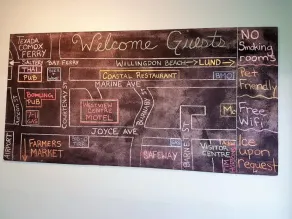 Welcome Guests
TEXADA
COMOX
FERRY
SALTERY BAY FERRY
WILLINGDON BEACH
LUND
THAI
PUB
COASTAL RESTAURANT
BMO
MARINE AVE
BOWLING
PUB
COURTENAY ST
WESTVIEW
CENTRE
MOTEL
JOYCE AVE
AIRPORT
FARMERS
MARKET
SAFEWAY
BARNET ST
VISITOR
CENTRE
NO
Smoking
rooms
Pet
friendly
Free
Wifi
Ice
upon
request